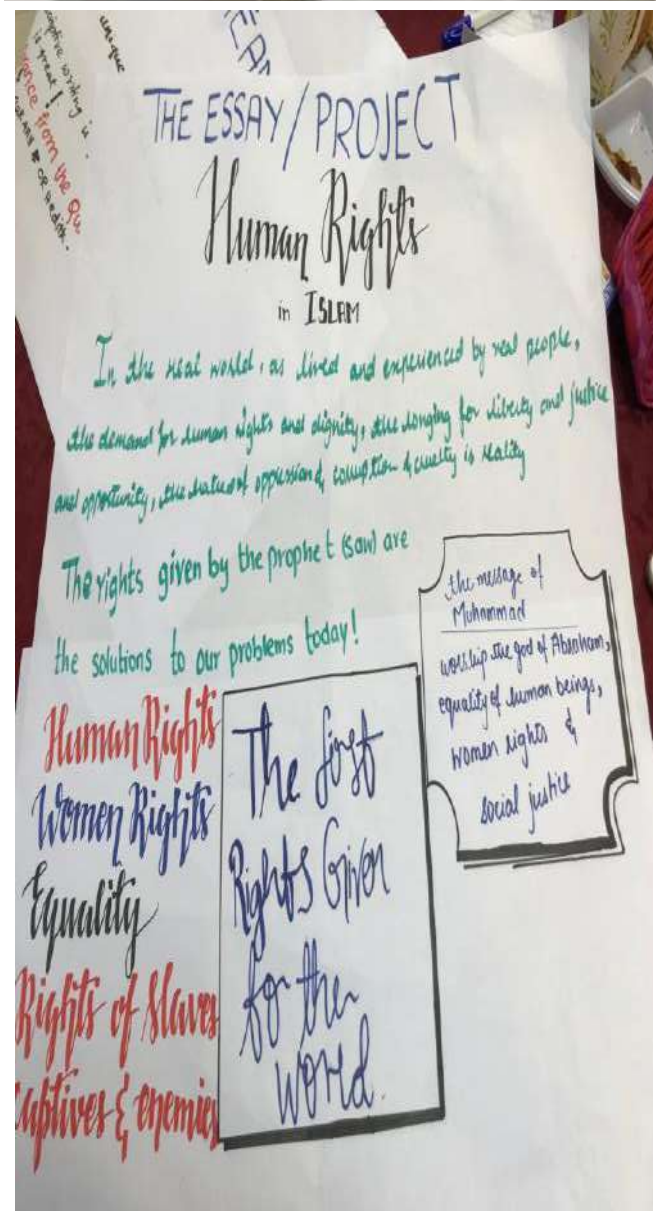 unique
writing is
is great!
from the Qu
EAN
THE ESSAY/PROJECT
Human Rights
in ISLAM
In the real world, as lived and experienced by real people,
the demand for human rights and dignity, the longing for liberty and justice
and opportunity, the hatred of oppression & corruption & cruelty is reality
The rights given by the prophet (saw) are
the solutions to our problems today!
the message of
Muhammad
worship the god of Abraham,
equality of human beings,
women rights &
social justice
Human Rights
Women Rights
Equality
Rights of Slaves
captives & enemies
The first
Rights Given
for the
world.